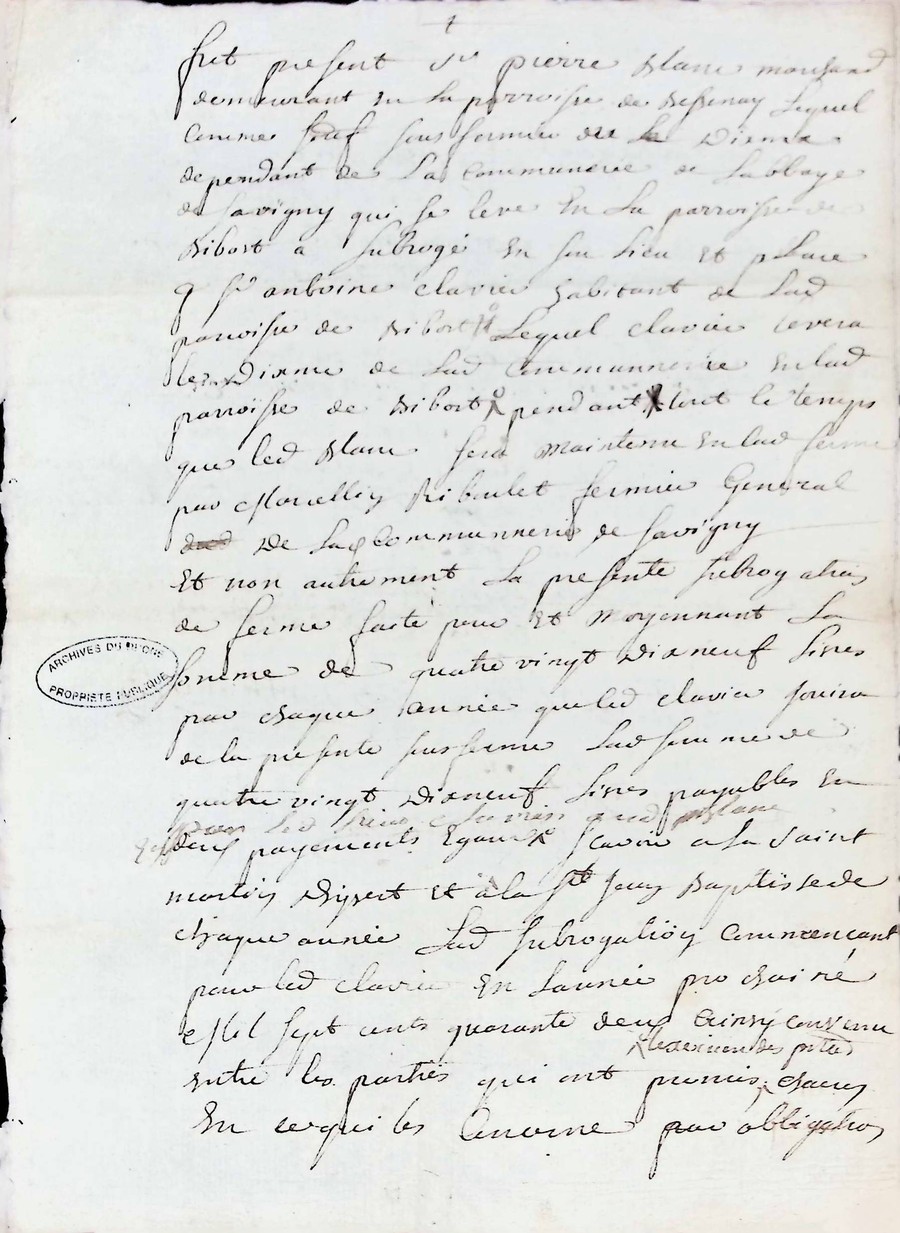 fut present Sr pierre blanc marchand
demeurant en la parroisse de Bessenay Lequel
Comme sous fermier de La Dixme
dependant de La Communerie de Labbaye
de Savigny qui se leve En La parroisse de
Bibost a subrogé En son Lieu et place
Sr anthoine clavier habitant de Lad
parroisse de Bibost Lequel clavier levera
le Dixme de Lad Communnerie En lad
parroisse de Bibost pendant tout le temps
que led blanc sera maintenu En lad ferme
par Marcellin Riboulet fermier General
De Lad Communnerie de Savigny
Et non autrement La presente subrogation
de ferme faite pour Et moyennant La
somme de quatre vingt Dixneuf Livres
ARCHIVES DU RHONE
PROPRIETE PUBLIQUE
par chaque année que led clavier Jouira
de la presente sous ferme Lad somme de
quatre vingt Dixneuf Livres payables En
par led Sieur Clavier aud Blanc
deux payements Egaux Scavoir a La Saint
martin Dhyvert et a la St Jean Baptisse de
chaque année Lad subrogation Commencant
pour led clavier En Lannée prochaine
Mil sept cents quarante deux Ainsy convenu
lexecution des pntes
entre les parties qui ont promis chacun
En ce qui les Concerne par obligation